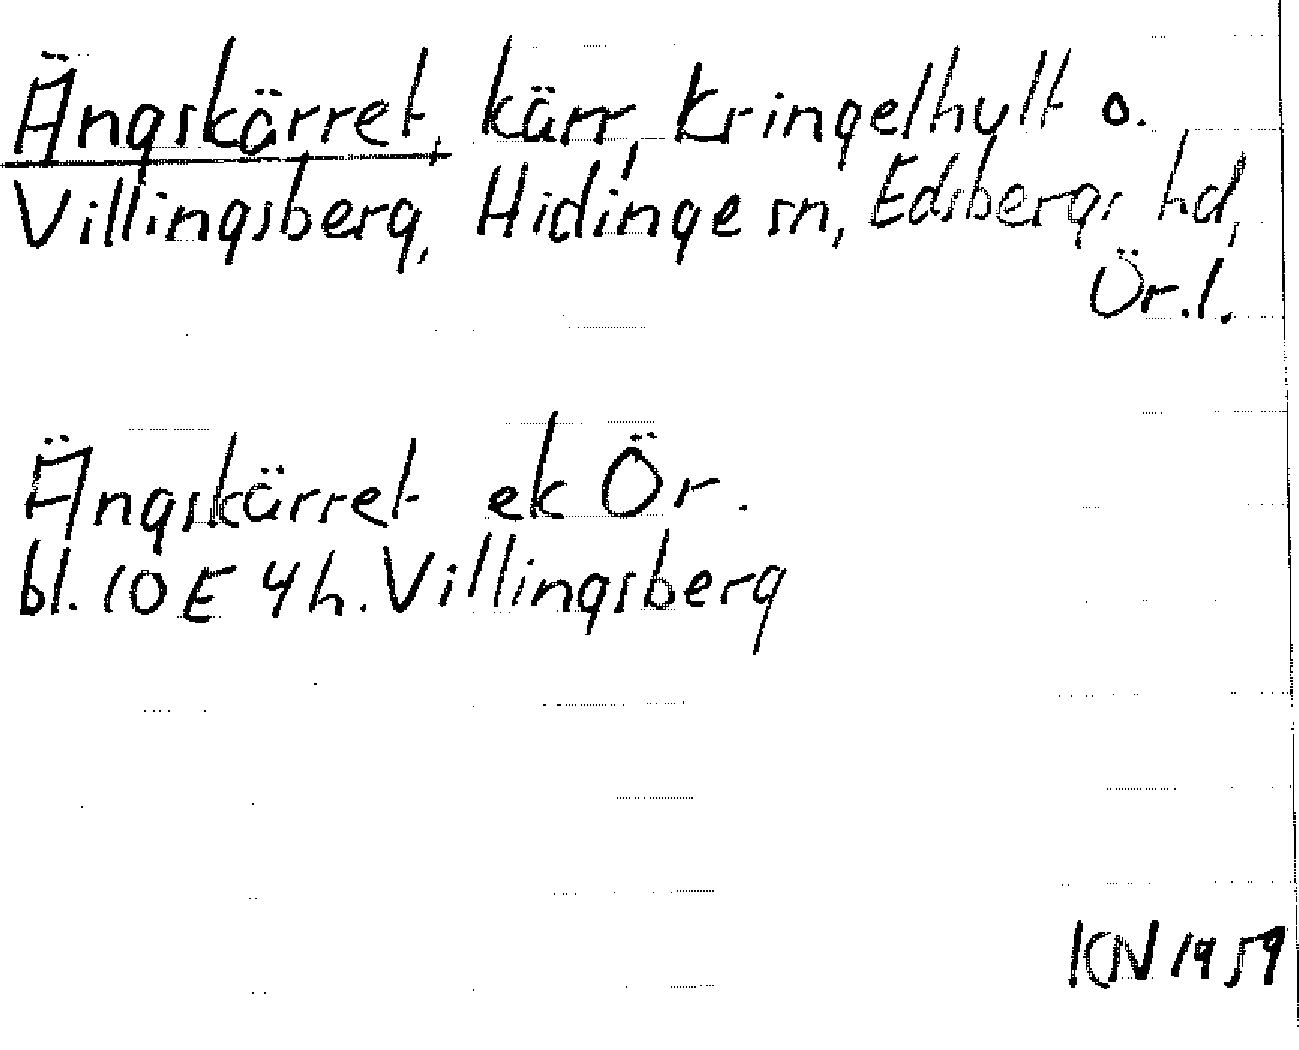 Ängskärret, kärr, Kringelhult o.
Villingsberg, Hidinge sn, Edsbergs hd,
Ör. l.
Ängskärret ek Ör.
bl. 10 E 4 h. Villingsberg
1959